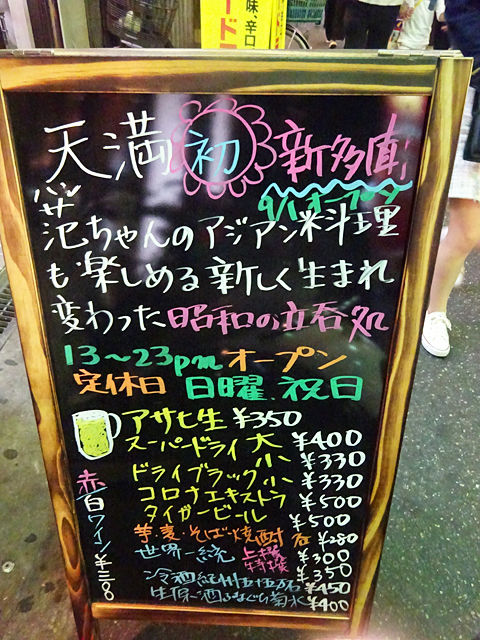 味、辛口
ード
天満 初 新多直
9/1オープン
ハン
サ
氾ちゃんのアジアン料理
も楽しめる新しく生まれ
変わった昭和の立呑処
13〜23pmオープン
定休日 日曜、祝日
アサヒ生 ¥350
スーパードライ 大 ¥400
小 ¥330
ドライブラック 小 ¥330
コロナエキストラ ¥500
タイガービール ¥500
芋・麦・そば・焼酎 各 ¥280
世界一統 上撰 ¥300
特撰 ¥350
冷酒 紀州五十五万石 ¥450
生原酒 ふなぐち菊水 ¥400
赤白ワイン ¥300